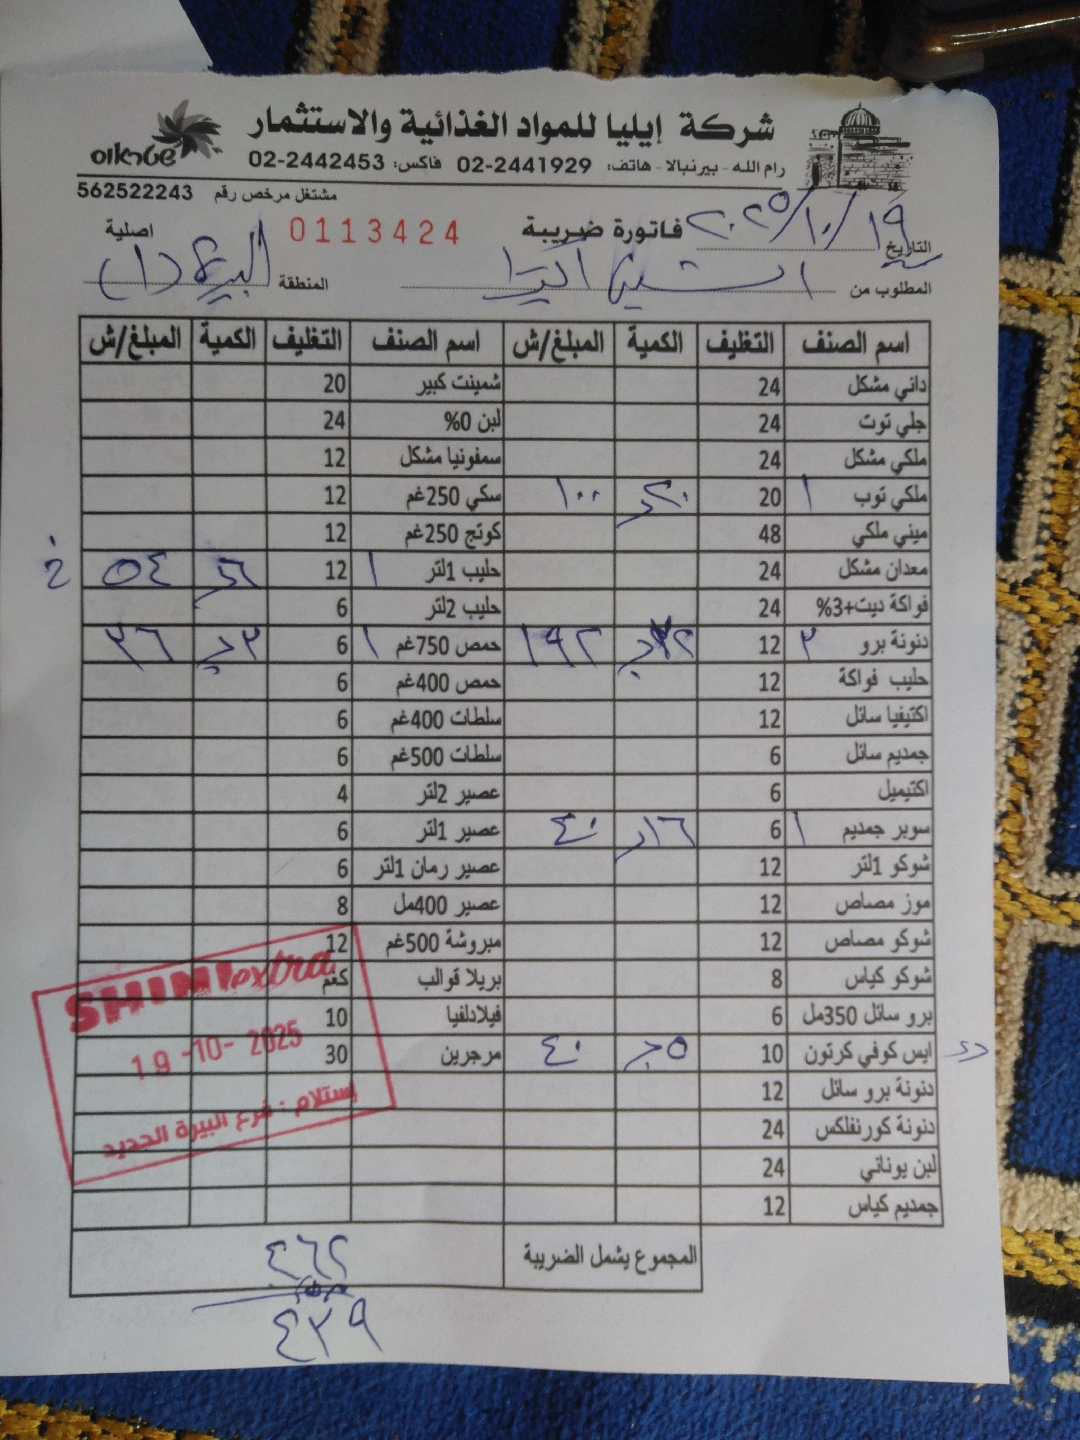 شركة إيليا للمواد الغذائية والاستثمار
شتراوس
رام الله - بيرنبالا - هاتف: 02-2441929 فاكس: 02-2442453
مشتغل مرخص رقم 562522243
التاريخ ١٩/١٠/٢٠٢٥ فاتورة ضريبة 0113424 اصلية
المطلوب من الشيني اكسترا المنطقة البيرة (د)
اسم الصنف التغليف الكمية المبلغ/ش اسم الصنف التغليف الكمية المبلغ/ش
داني مشكل 24 شمينت كبير 20
جلي توت 24 لبن 0% 24
ملكي مشكل 24 سمفونيا مشكل 12
ملكي توب ١ 20 ٢٠ ١٠٠ سكي 250غم 12
ميني ملكي 48 كوتج 250غم 12
معدان مشكل 24 حليب 1لتر ١ 12 ٥٤
فواكة ديت+3% 24 حليب 2لتر 6
دنونة برو ٣ 12 ١٩٢ حمص 750غم ١ 6 ٣ د ٣٦
حليب فواكة 12 حمص 400غم 6
اكتيفيا سائل 12 سلطات 400غم 6
جمديم سائل 6 سلطات 500غم 6
اكتيميل 6 عصير 2لتر 4
سوبر جمديم ١ 6 ١٦د ٤٠ عصير 1لتر 6
شوكو 1لتر 12 عصير رمان 1لتر 6
موز مصاص 12 عصير 400مل 8
شوكو مصاص 12 مبروشة 500غم 12
شوكو كياس 8 بريلا قوالب كغم
برو سائل 350مل 6 فيلادلفيا 10
ايس كوفي كرتون 10 ٥د ٤٠ مرجرين 30
دنونة برو سائل 12
دنونة كورنفلكس 24
لبن يوناني 24
جمديم كياس 12
SHINI extra
19-10-2025
إستلام : فرع البيرة الجديد
المجموع يشمل الضريبة ٤٦٢
٤٣٩